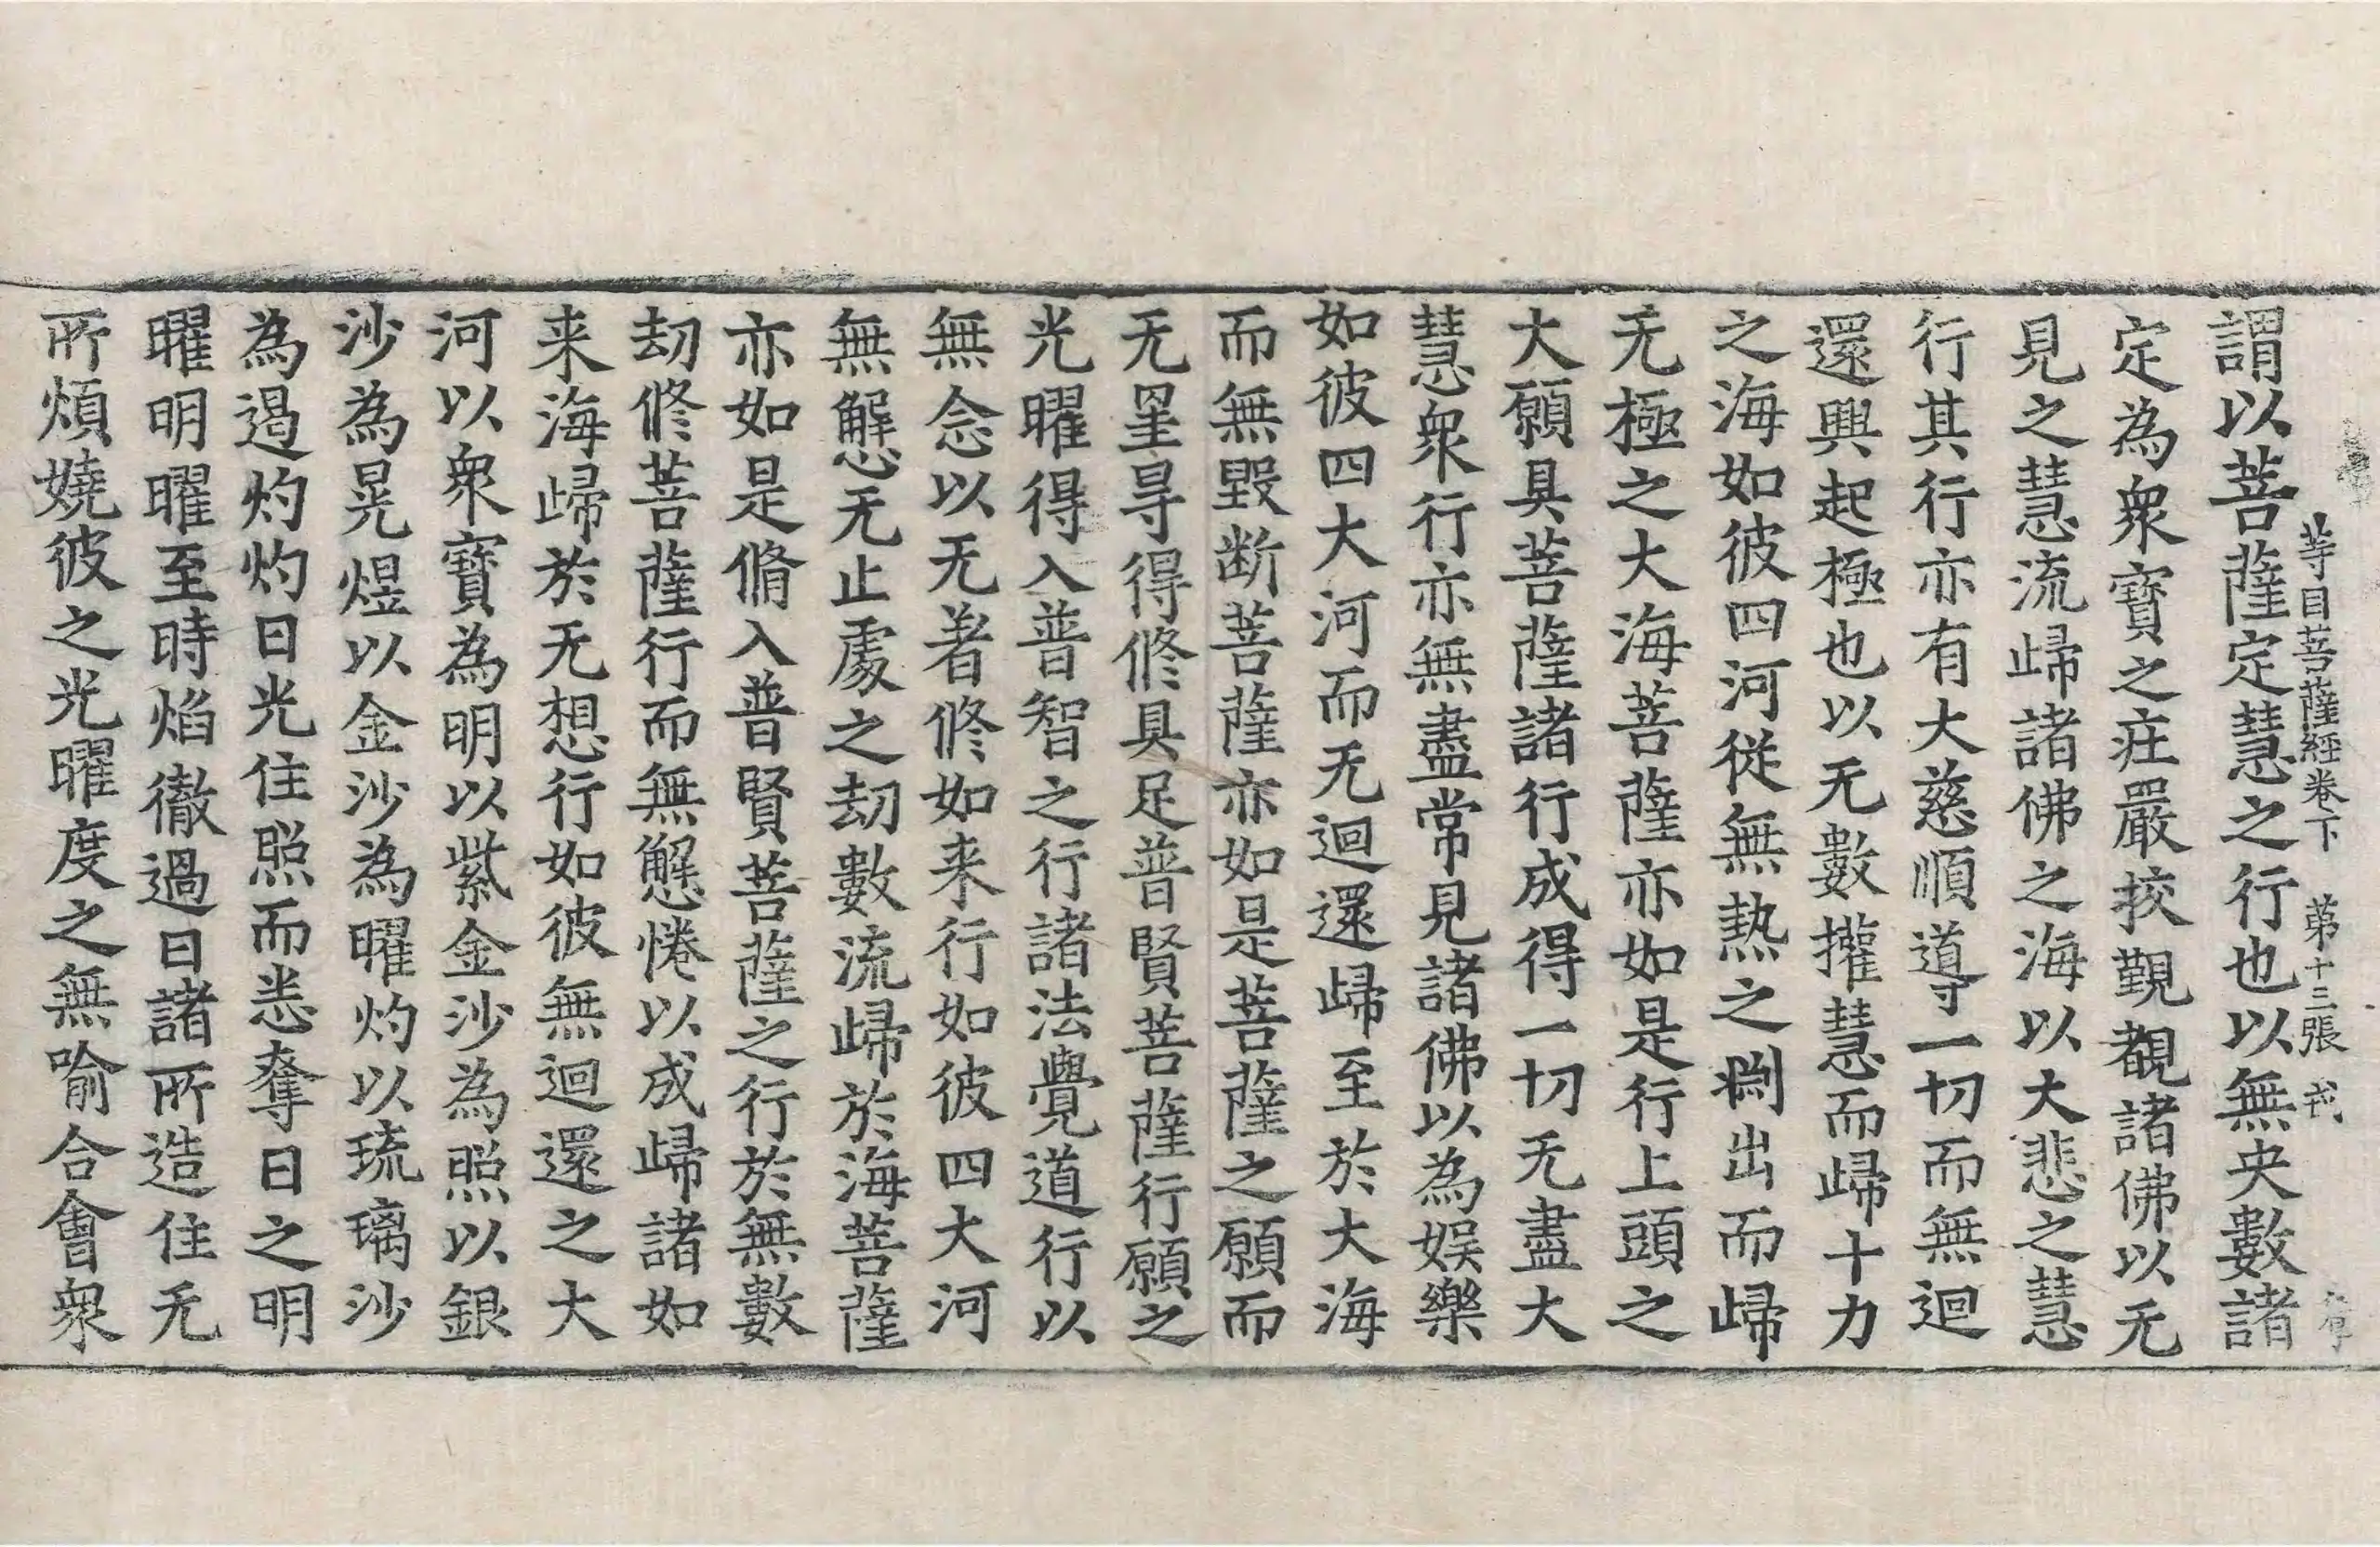 等目菩薩經卷下 第十三張 戎
謂以菩薩定慧之行也以無央數諸
定為衆寶之庄嚴挍觀覩諸佛以无
見之慧流歸諸佛之海以大悲之慧
行其行亦有大慈順導一切而無迴
還興起極也以无數攉慧而歸十力
之海如彼四河從無熱之渕出而歸
无極之大海菩薩亦如是行上頭之
大願具菩薩諸行成得一切无盡大
慧衆行亦無盡常見諸佛以為娛樂
如彼四大河而无迴還歸至於大海
而無毀断菩薩亦如是菩薩之願而
无罣㝵得修具足普賢菩薩行願之
光曜得入普智之行諸法覺道行以
無念以无著修如来行如彼四大河
無懈怠无止處之劫數流歸於海菩薩
亦如是脩入普賢菩薩之行於無數
劫修菩薩行而無懈惓以成歸諸如
来海歸於无想行如彼無迴還之大
河以衆寶為明以紫金沙為照以銀
沙為晃煜以金沙為曜灼以琉璃沙
為遏灼灼日光住照而悉奪日之明
曜明曜至時焰徹過日諸所造住无
所煩嬈彼之光曜度之無喻合會衆